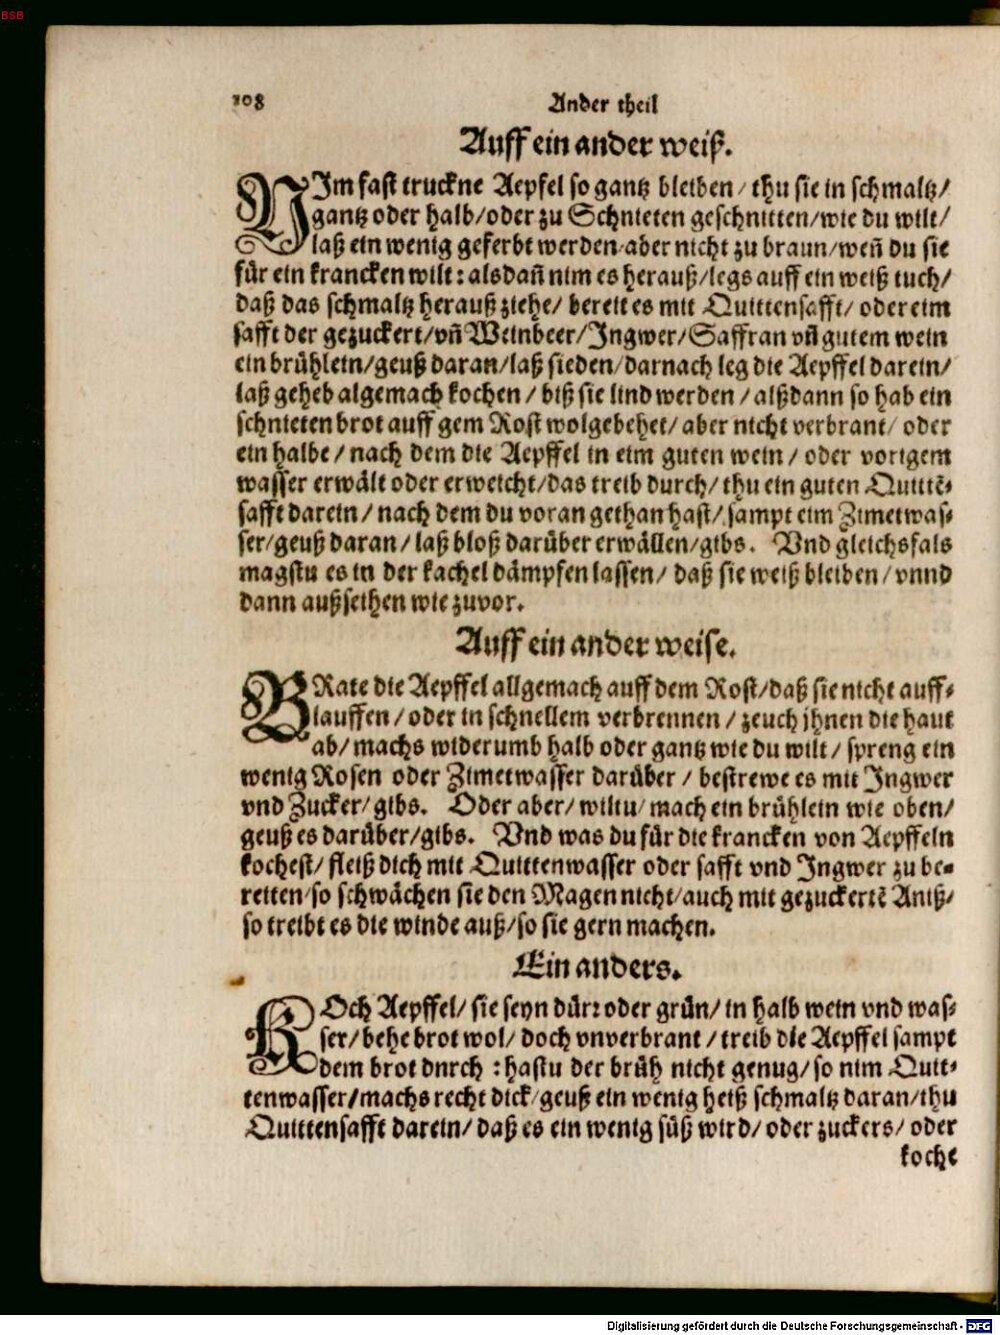 BSB
108 Ander theil
Auff ein ander weiß.
NJm fast truckne Aepfel so gantz bleiben / thu sie in schmaltz/
gantz oder halb/oder zu Schnieten geschnitten/wie du wilt/
laß ein wenig geferbt werden/aber nicht zu braun/weñ du sie
für ein krancken wilt : alsdañ nim es herauß/legs auff ein weiß tuch/
daß das schmaltz herauß ziehe/ bereit es mit Quittensafft/ oder eim
safft der gezuckert/vñ Weinbeer/Jngwer/Saffran vñ gutem wein
ein brühlein/geuß daran/laß sieden/darnach leg die Aepffel darein/
laß geheb algemach kochen / biß sie lind werden / alßdann so hab ein
schnieten brot auff gem Rost wolgebehet/ aber nicht verbrant/ oder
ein halbe / nach dem die Aepffel in eim guten wein / oder vorigem
wasser erwält oder erweicht/das treib durch/ thu ein guten Quittē-
safft darein / nach dem du voran gethan hast/ sampt eim Zimetwas-
ser/geuß daran / laß bloß darüber erwällen/gibs. Vnd gleichsfals
magstu es in der kachel dämpfen lassen/ daß sie weiß bleiben / vnnd
dann außseihen wie zuvor.
Auff ein ander weise.
BRate die Aepffel allgemach auff dem Rost/daß sie nicht auff-
lauffen / oder in schnellem verbrennen / zeuch jhnen die haut
ab/ machs widerumb halb oder gantz wie du wilt / spreng ein
wenig Rosen oder Zimetwasser darüber / bestrewe es mit Jngwer
vnd Zucker/gibs. Oder aber/ wiltu/ mach ein brühlein wie oben/
geuß es darüber/gibs. Vnd was du für die krancken von Aepffeln
kochest/ fleiß dich mit Quittenwasser oder safft vnd Jngwer zu be-
reiten/so schwächen sie den Magen nicht/auch mit gezuckertē Aniß/
so treibt es die winde auß/so sie gern machen.
Ein anders.
KOch Aepffel/ sie seyn dürr oder grün/ in halb wein vnd was-
ser/ behe brot wol/ doch vnverbrant / treib die Aepffel sampt
dem brot dnrch : hastu der brüh nicht genug/ so nim Quit-
tenwasser/machs recht dick/geuß ein wenig heiß schmaltz daran/thu
Quittensafft darein/ daß es ein wenig süß wird/ oder zuckers/ oder
koche
Digitalisierung gefördert durch die Deutsche Forschungsgemeinschaft - DFG